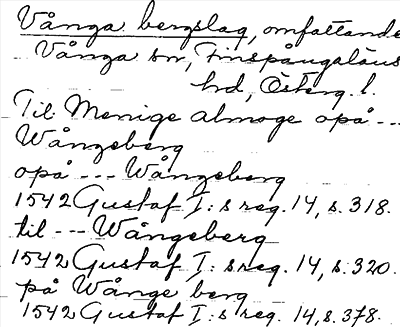 Vånga bergslag, omfattande
Vånga sn, Finspångaläns
hrd, Österg. l.
Til Menige almoge opå ---
Wångeberg
opå --- Wångeberg
1542 Gustaf I:s reg. 14, s. 318.
til --- Wångeberg
1542 Gustaf I:s reg. 14, s. 320.
på Wånge berg
1542 Gustaf I:s reg. 14, s. 378.